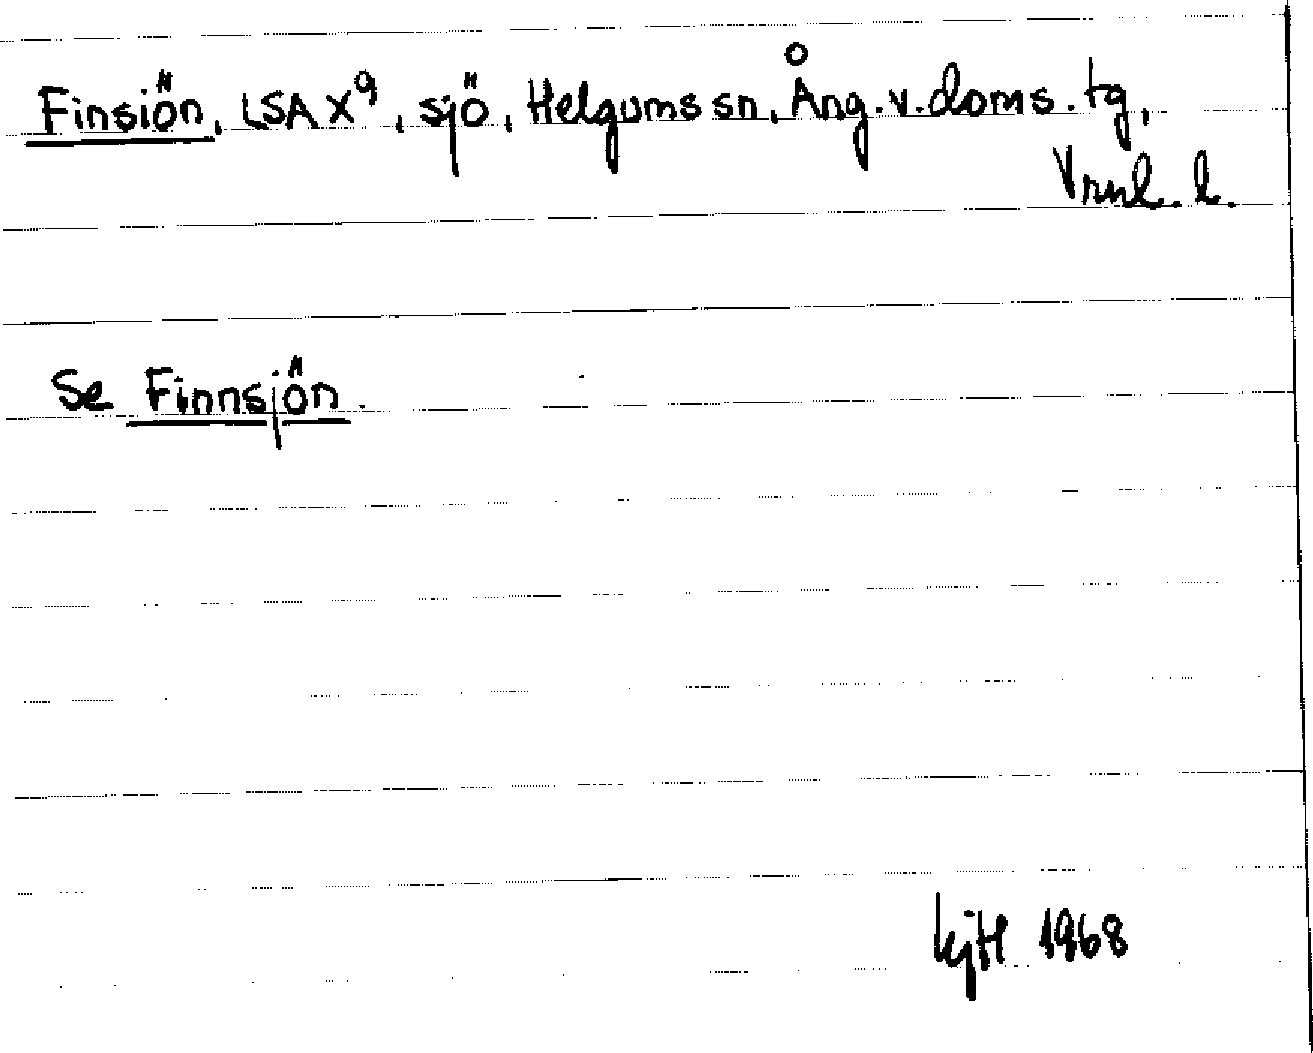 Finsiön, LSA X⁹, sjö, Helgums sn, Ång. v. doms. tg,
Vrnl. l.
Se Finnsjön.
KjH 1968